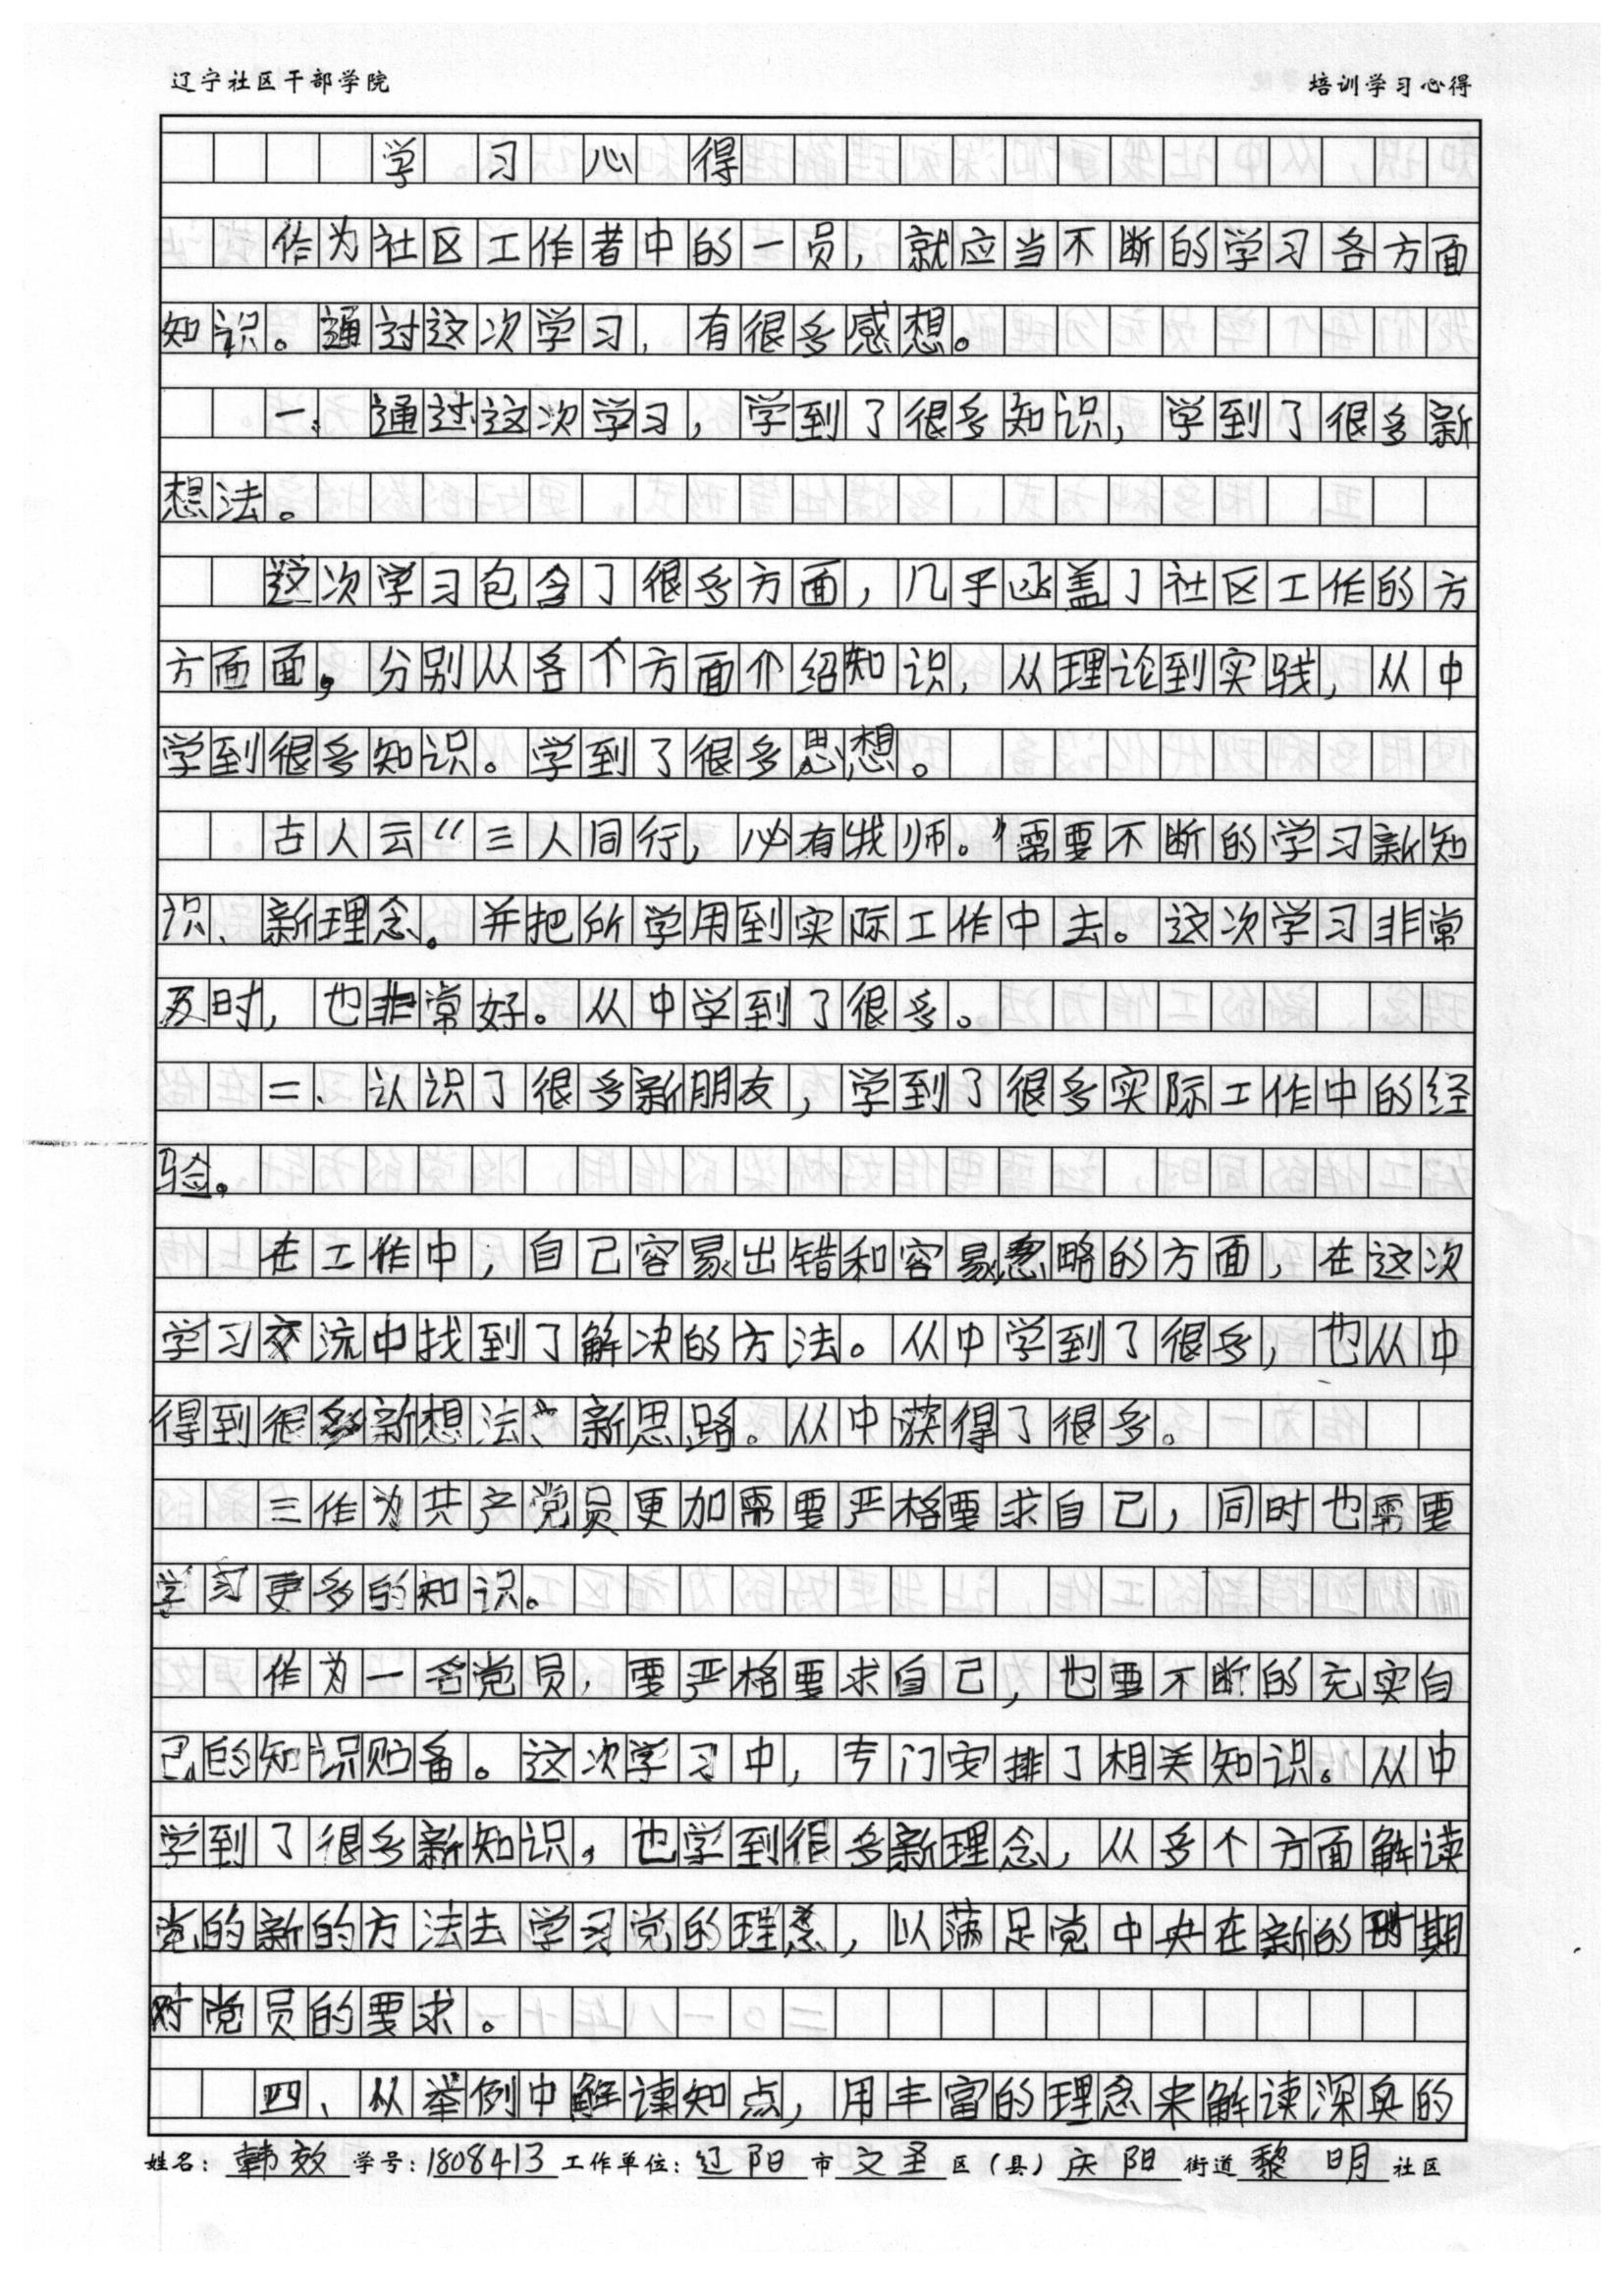 辽宁社区干部学院 培训学习心得
学习心得
作为社区工作者中的一员，就应当不断的学习各方面
知识。通过这次学习，有很多感想。
一、通过这次学习，学到了很多知识，学到了很多新
想法。
这次学习包含了很多方面，几乎函盖了社区工作的方
方面面，分别从各个方面介绍知识，从理论到实践，从中
学到很多知识。学到了很多思想。
古人云“三人同行，必有我师。”需要不断的学习新知
识、新理念。并把所学用到实际工作中去。这次学习非常
及时，也非常好。从中学到了很多。
二、认识了很多新朋友，学到了很多实际工作中的经
验。
在工作中，自己容易出错和容易忽略的方面，在这次
学习交流中找到了解决的方法。从中学到了很多，也从中
得到很多新想法、新思路。从中获得了很多。
三作为共产党员更加需要严格要求自己，同时也需要
学习更多的知识。
作为一名党员，要严格要求自己，也要不断的充实自
己的知识贮备。这次学习中，专门安排了相关知识。从中
学到了很多新知识，也学到很多新理念，从多个方面解读
党的新的方法去学习党的理念，以满足党中央在新的时期
对党员的要求。
四、从举例中解读知点，用丰富的理念来解读深奥的
姓名：韩效 学号：1808413 工作单位：辽阳市文圣区（县）庆阳街道黎明社区